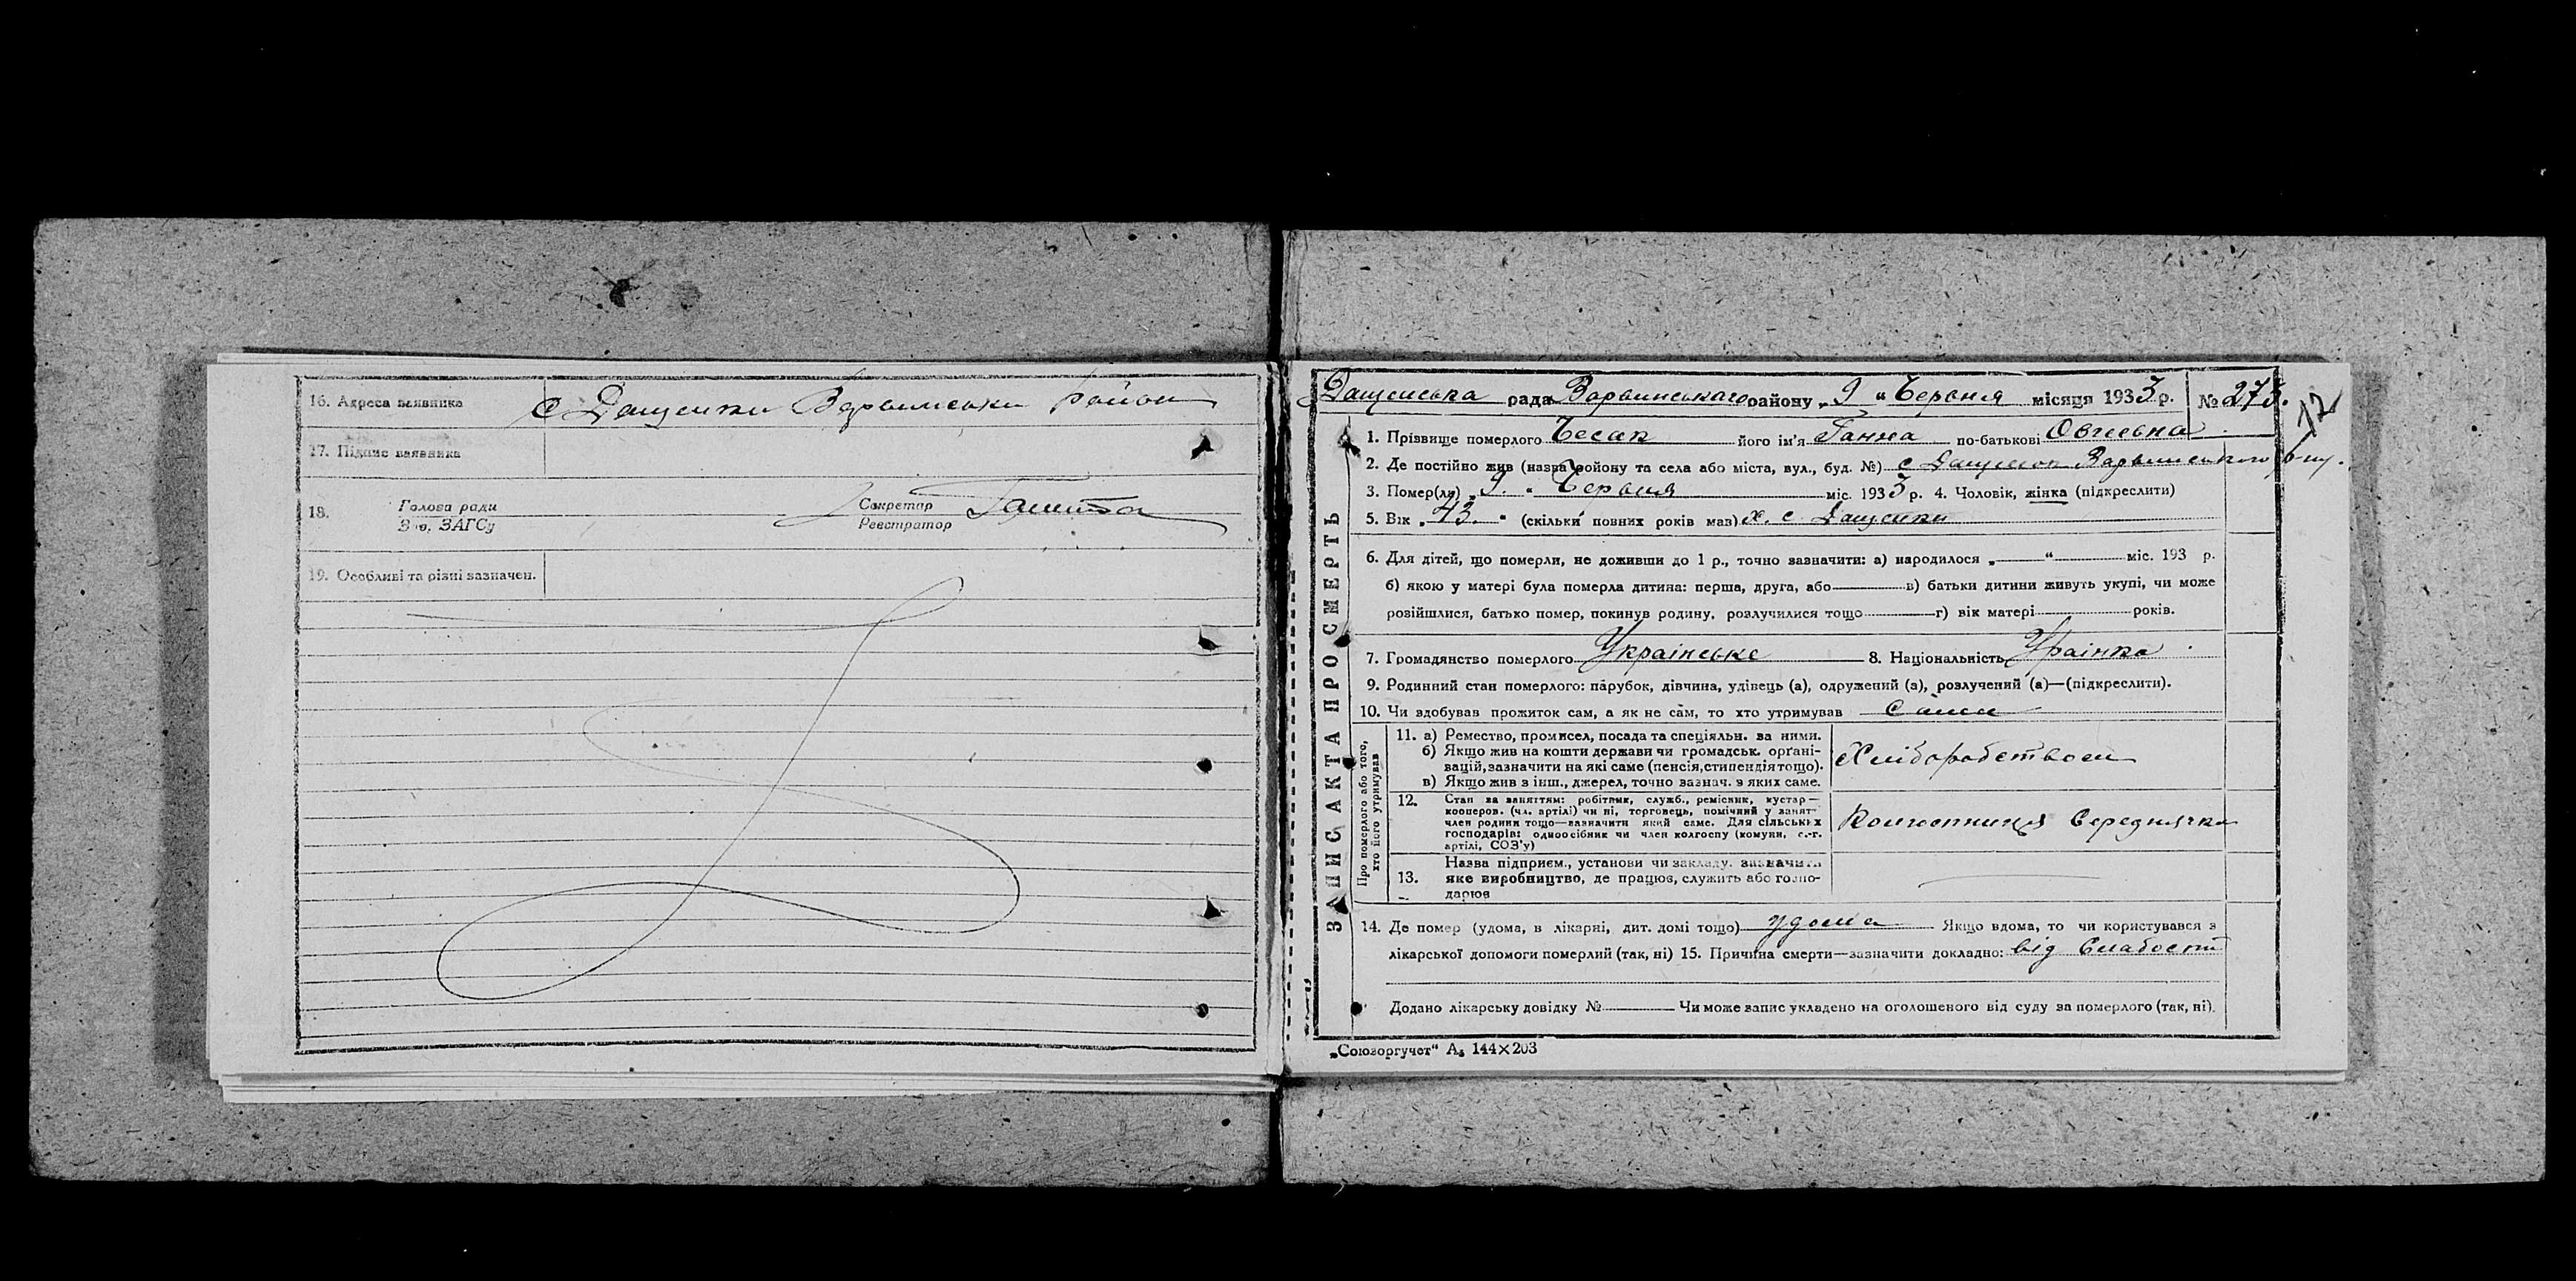 16. Адреса заявника с Дащенки Варвинськи Район
17. Підпис заявника
18. Голова ради
Зав. ЗАГСу
Секретар
Реєстратор
19. Особливі та різні зазначен.
ЗАПИС АКТА ПРО СМЕРТЬ
Дащенська рада Варвинського району „ 9 “ Червня місяця 1933 р. № 273.
12
1. Прізвище померлого Чесак його ім'я Ганна по-батькові
2. Де постійно жив (назва району та села або міста, вул., буд. №) с Дащенки Варвинського р-ну.
3. Помер(ла) „ 9. “ Червня міс. 1933 р. 4. Чоловік, жінка (підкреслити)
5. Вік „ 43. “ (скільки повних років мав) х. с Дащенки
6. Для дітей, що померли, не доживши до 1 р., точно зазначити: а) народилося „ “ міс. 193 р.
б) якою у матері була померла дитина: перша, друга, або в) батьки дитини живуть укупі, чи може
розійшлися, батько помер, покинув родину, розлучилися тощо г) вік матері років.
7. Громадянство померлого Українське 8. Національність Украінка
9. Родинний стан померлого: парубок, дівчина, удівець (а), одружений (а), розлучений (а)—(підкреслити).
10. Чи здобував прожиток сам, а як не сам, то хто утримував Сама
Про померлого або того,
хто його утримував
11. а) Ремество, промисел, посада та спеціяльн. за ними.
б) Якщо жив на кошти держави чи громадськ. орґані-
зацій, зазначити на які саме (пенсія, стипендія тощо).
в) Якщо жив з інш., джерел, точно зазнач. з яких саме.
Хліборобством
12. Стан за заняттям: робітник, служб., ремісник, кустар—
кооперов. (чл. артілі) чи ні, торговець, помічний у занят-
член родини тощо—зазначити який саме. Для сільських
господарів: одноосібник чи член колгоспу (комуни, с.-г.
артілі, СОЗ'у)
Колгоспниця Середнячка
13. Назва підприєм., установи чи закладу, зазначити
яке виробництво, де працює, служить або госпо-
дарює
14. Де помер (удома, в лікарні, дит. домі тощо) удома Якщо вдома, то чи користувався з
лікарської допомоги померлий (так, ні) 15. Причина смерти—зазначити докладно: від Слабости
Додано лікарську довідку № Чи може запис укладено на оголошеного від суду за померлого (так, ні).
„Союзоргучет“ А₅ 144×203